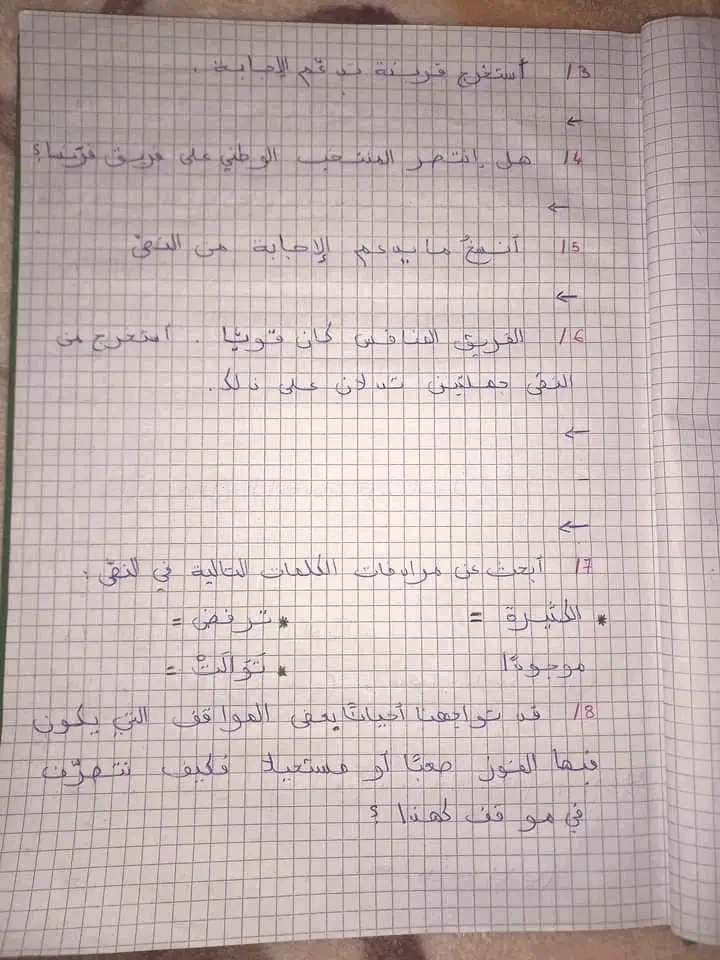 13/ أستخرج قرينة تدعم الإجابة.
←
14/ هل إنتصر المنتخب الوطني على فريق فرنسا؟
←
15/ أنسخُ ما يدعم الإجابة من النص
←
16/ الفريق المنافس كان قويًا أستخرج من
النص جملتين تدلان على ذلك.
←
-
←
17/ أبحث عن مرادفات الكلمات التالية في النص:
* الكثيرة = * ترفض =
موجودًا * تَوَالَتْ =
18/ قد تواجهنا أحيانًا بعض المواقف التي يكون
فيها الفوز صعبًا أو مستحيلا فكيف نتصرّف
في موقف كهذا؟